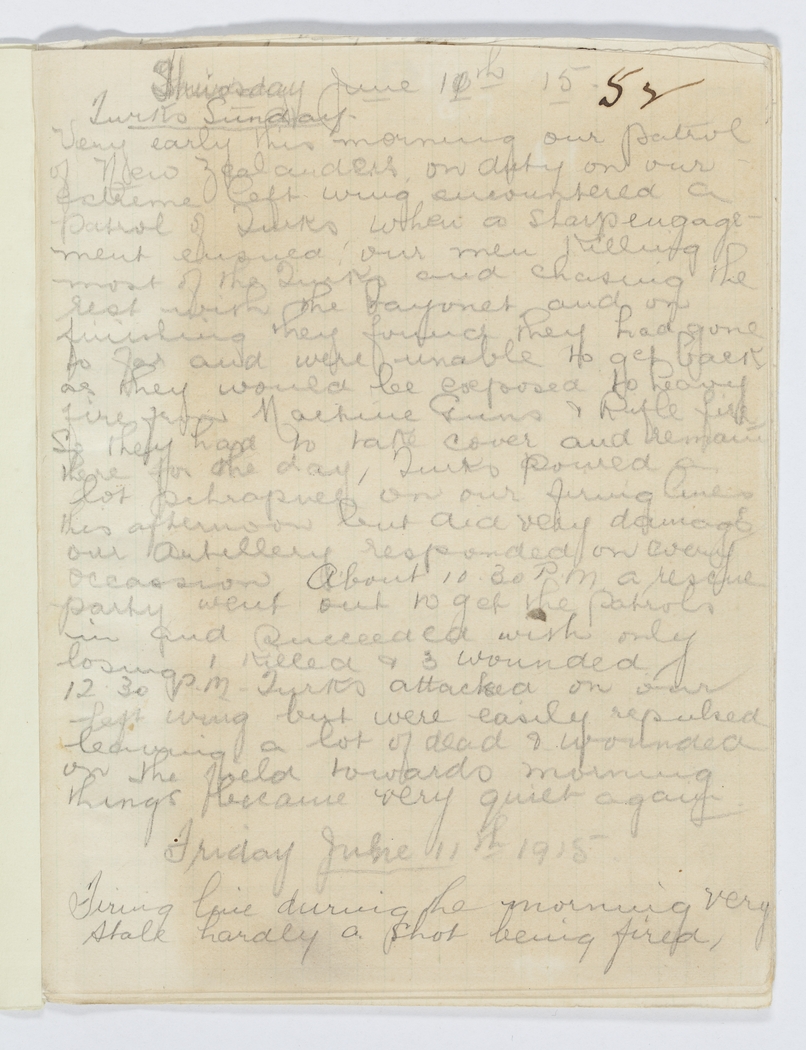 Thursday June 10th 15. 52
Turks Sunday.
Very early this morning our patrol
of New Zealanders, on duty on our
extreme left wing encountered a
patrol of Turks when a sharp engage-
ment ensued, our men killing
most of the Turks and chasing the
rest with the bayonet and on
finishing they found they had gone
to far and were unable to get back
as they would be exposed to heavy
fire from Machine Guns & Rifle fire
So they had to take cover and remain
there for the day, Turks poured a
lot schrapnel on our firing lines
this afternoon but did very damage
our Artillery responded on every
occassion About 10.30 P.M a rescue
party went out to get the patrols
in and succeeded with only
losing 1 killed & 3 wounded
12.30 P.M. Turks attacked on our
left wing but were easily repulsed
leaving a lot of dead & wounded
on the field towards morning
things became very quiet again.
Friday June 11th 1915
Firing line during he morning very
stale hardly a shot being fired,